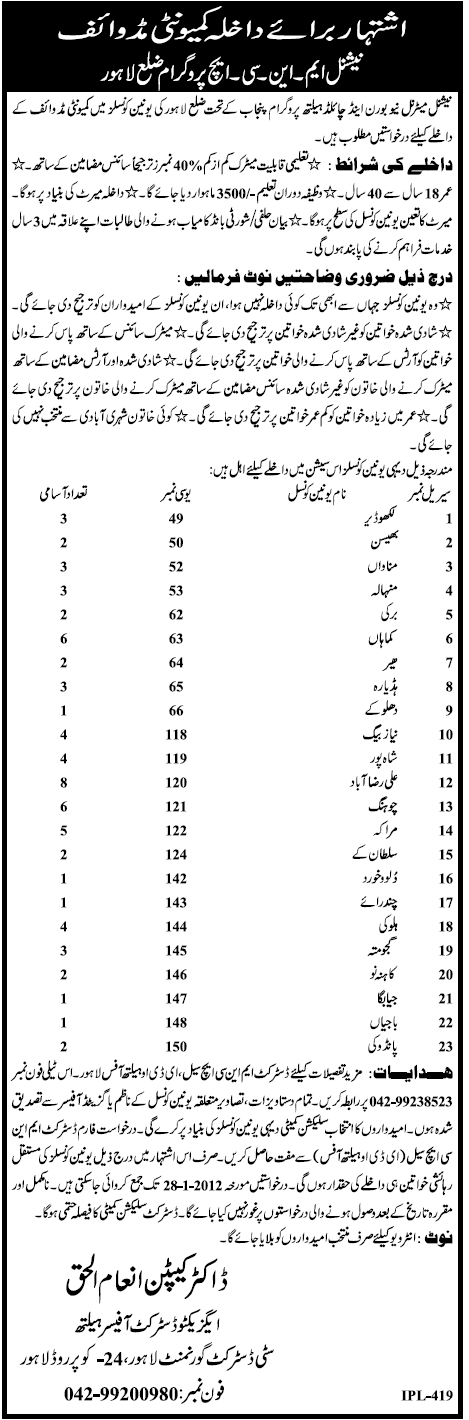 اشتہار برائے داخلہ کمیونٹی مڈوائف
نیشنل ایم۔ این۔ سی۔ ایچ پروگرام ضلع لاہور
نیشنل میٹرنل نیوبورن اینڈ چائلڈ ہیلتھ پروگرام پنجاب کے تحت ضلع لاہور کی یونین کونسلز میں کمیونٹی مڈوائف کے
داخلے کیلئے درخواستیں مطلوب ہیں۔
داخلے کی شرائط : ☆ تعلیمی قابلیت میٹرک کم از کم %40 نمبرز ترجیحاً سائنس مضامین کے ساتھ۔ ☆
عمر 18 سال سے 40 سال۔ ☆ وظیفہ دوران تعلیم -/3500 ماہوار دیا جائے گا۔ ☆ داخلہ میرٹ کی بنیاد پر ہوگا۔
میرٹ کا تعین یونین کونسل کی سطح پر ہوگا۔ ☆ بیان حلفی/ شورٹی بانڈ کامیاب ہونے والی طالبات اپنے علاقہ میں 3 سال
خدمات فراہم کرنے کی پابند ہوں گی۔
درج ذیل ضروری وضاحتیں نوٹ فرمالیں:
☆ وہ یونین کونسلز جہاں سے ابھی تک کوئی داخلہ نہیں ہوا، ان یونین کونسلز کے امیدواران کو ترجیح دی جائے گی۔
☆ شادی شدہ خواتین کو غیر شادی شدہ خواتین پر ترجیح دی جائے گی۔ ☆ میٹرک سائنس کے ساتھ پاس کرنے والی
خواتین کو آرٹس کے ساتھ پاس کرنے والی خواتین پر ترجیح دی جائے گی۔ ☆ شادی شدہ اور آرٹس مضامین کے ساتھ
میٹرک کرنے والی خاتون کو غیر شادی شدہ سائنس مضامین کے ساتھ میٹرک کرنے والی خاتون پر ترجیح دی جائے
گی۔ ☆ عمر میں زیادہ خواتین کو کم عمر خواتین پر ترجیح دی جائے گی۔ ☆ کوئی خاتون شہری آبادی سے منتخب نہیں کی
جائے گی۔
مندرجہ ذیل دیہی یونین کونسلز اس سیشن میں داخلے کیلئے اہل ہیں:
سیریل نمبر نام یونین کونسل یوسی نمبر تعداد آسامی
1 لکھوڈیر 49 3
2 بھیسن 50 2
3 مناواں 52 3
4 منہالہ 53 3
5 برکی 62 2
6 کماہاں 63 6
7 ھیر 64 2
8 ہڈیارہ 65 3
9 دھلوکے 66 1
10 نیاز بیگ 118 4
11 شاہ پور 119 4
12 علی رضا آباد 120 8
13 چوہنگ 121 6
14 مراکہ 122 5
15 سلطان کے 124 2
16 ڈلو وخورد 142 1
17 چندرائے 143 1
18 ہلوکی 144 4
19 گجومتہ 145 3
20 کاہنہ نو 146 2
21 جیابگا 147 1
22 باجیاں 148 1
23 پانڈوکی 150 2
ھدایات: مزید تفصیلات کیلئے ڈسٹرکٹ ایم این سی ایچ سیل، ای ڈی او ہیلتھ آفس لاہور۔ اس ٹیلی فون نمبر
042-99238523 پر رابطہ کریں۔ تمام دستاویزات، تصاویر متعلقہ یونین کونسل کے ناظم یا گزیٹڈ آفیسر سے تصدیق
شدہ ہوں۔ امیدواروں کا انتخاب سلیکشن کمیٹی دیہی یونین کونسلز کی بنیاد پر کرے گی۔ درخواست فارم ڈسٹرکٹ ایم این
سی ایچ سیل (ای ڈی او ہیلتھ آفس) سے مفت حاصل کریں۔ صرف اس اشتہار میں درج ذیل یونین کونسلز کی مستقل
رہائشی خواتین ہی داخلے کی حقدار ہوں گی۔ درخواستیں مورخہ 28-1-2012 تک جمع کروائی جاسکتی ہیں۔ نامکمل اور
مقررہ تاریخ کے بعد وصول ہونے والی درخواستوں پر غور نہیں کیا جائے گا۔ ڈسٹرکٹ سلیکشن کمیٹی کا فیصلہ حتمی ہوگا۔
نوٹ: انٹرویو کیلئے صرف منتخب امیدواروں کو بلایا جائے گا۔
ڈاکٹر کیپٹن انعام الحق
ایگزیکٹو ڈسٹرکٹ آفیسر ہیلتھ
سٹی ڈسٹرکٹ گورنمنٹ لاہور، 24- کوپر روڈ لاہور
فون نمبر: 042-99200980
IPL-419